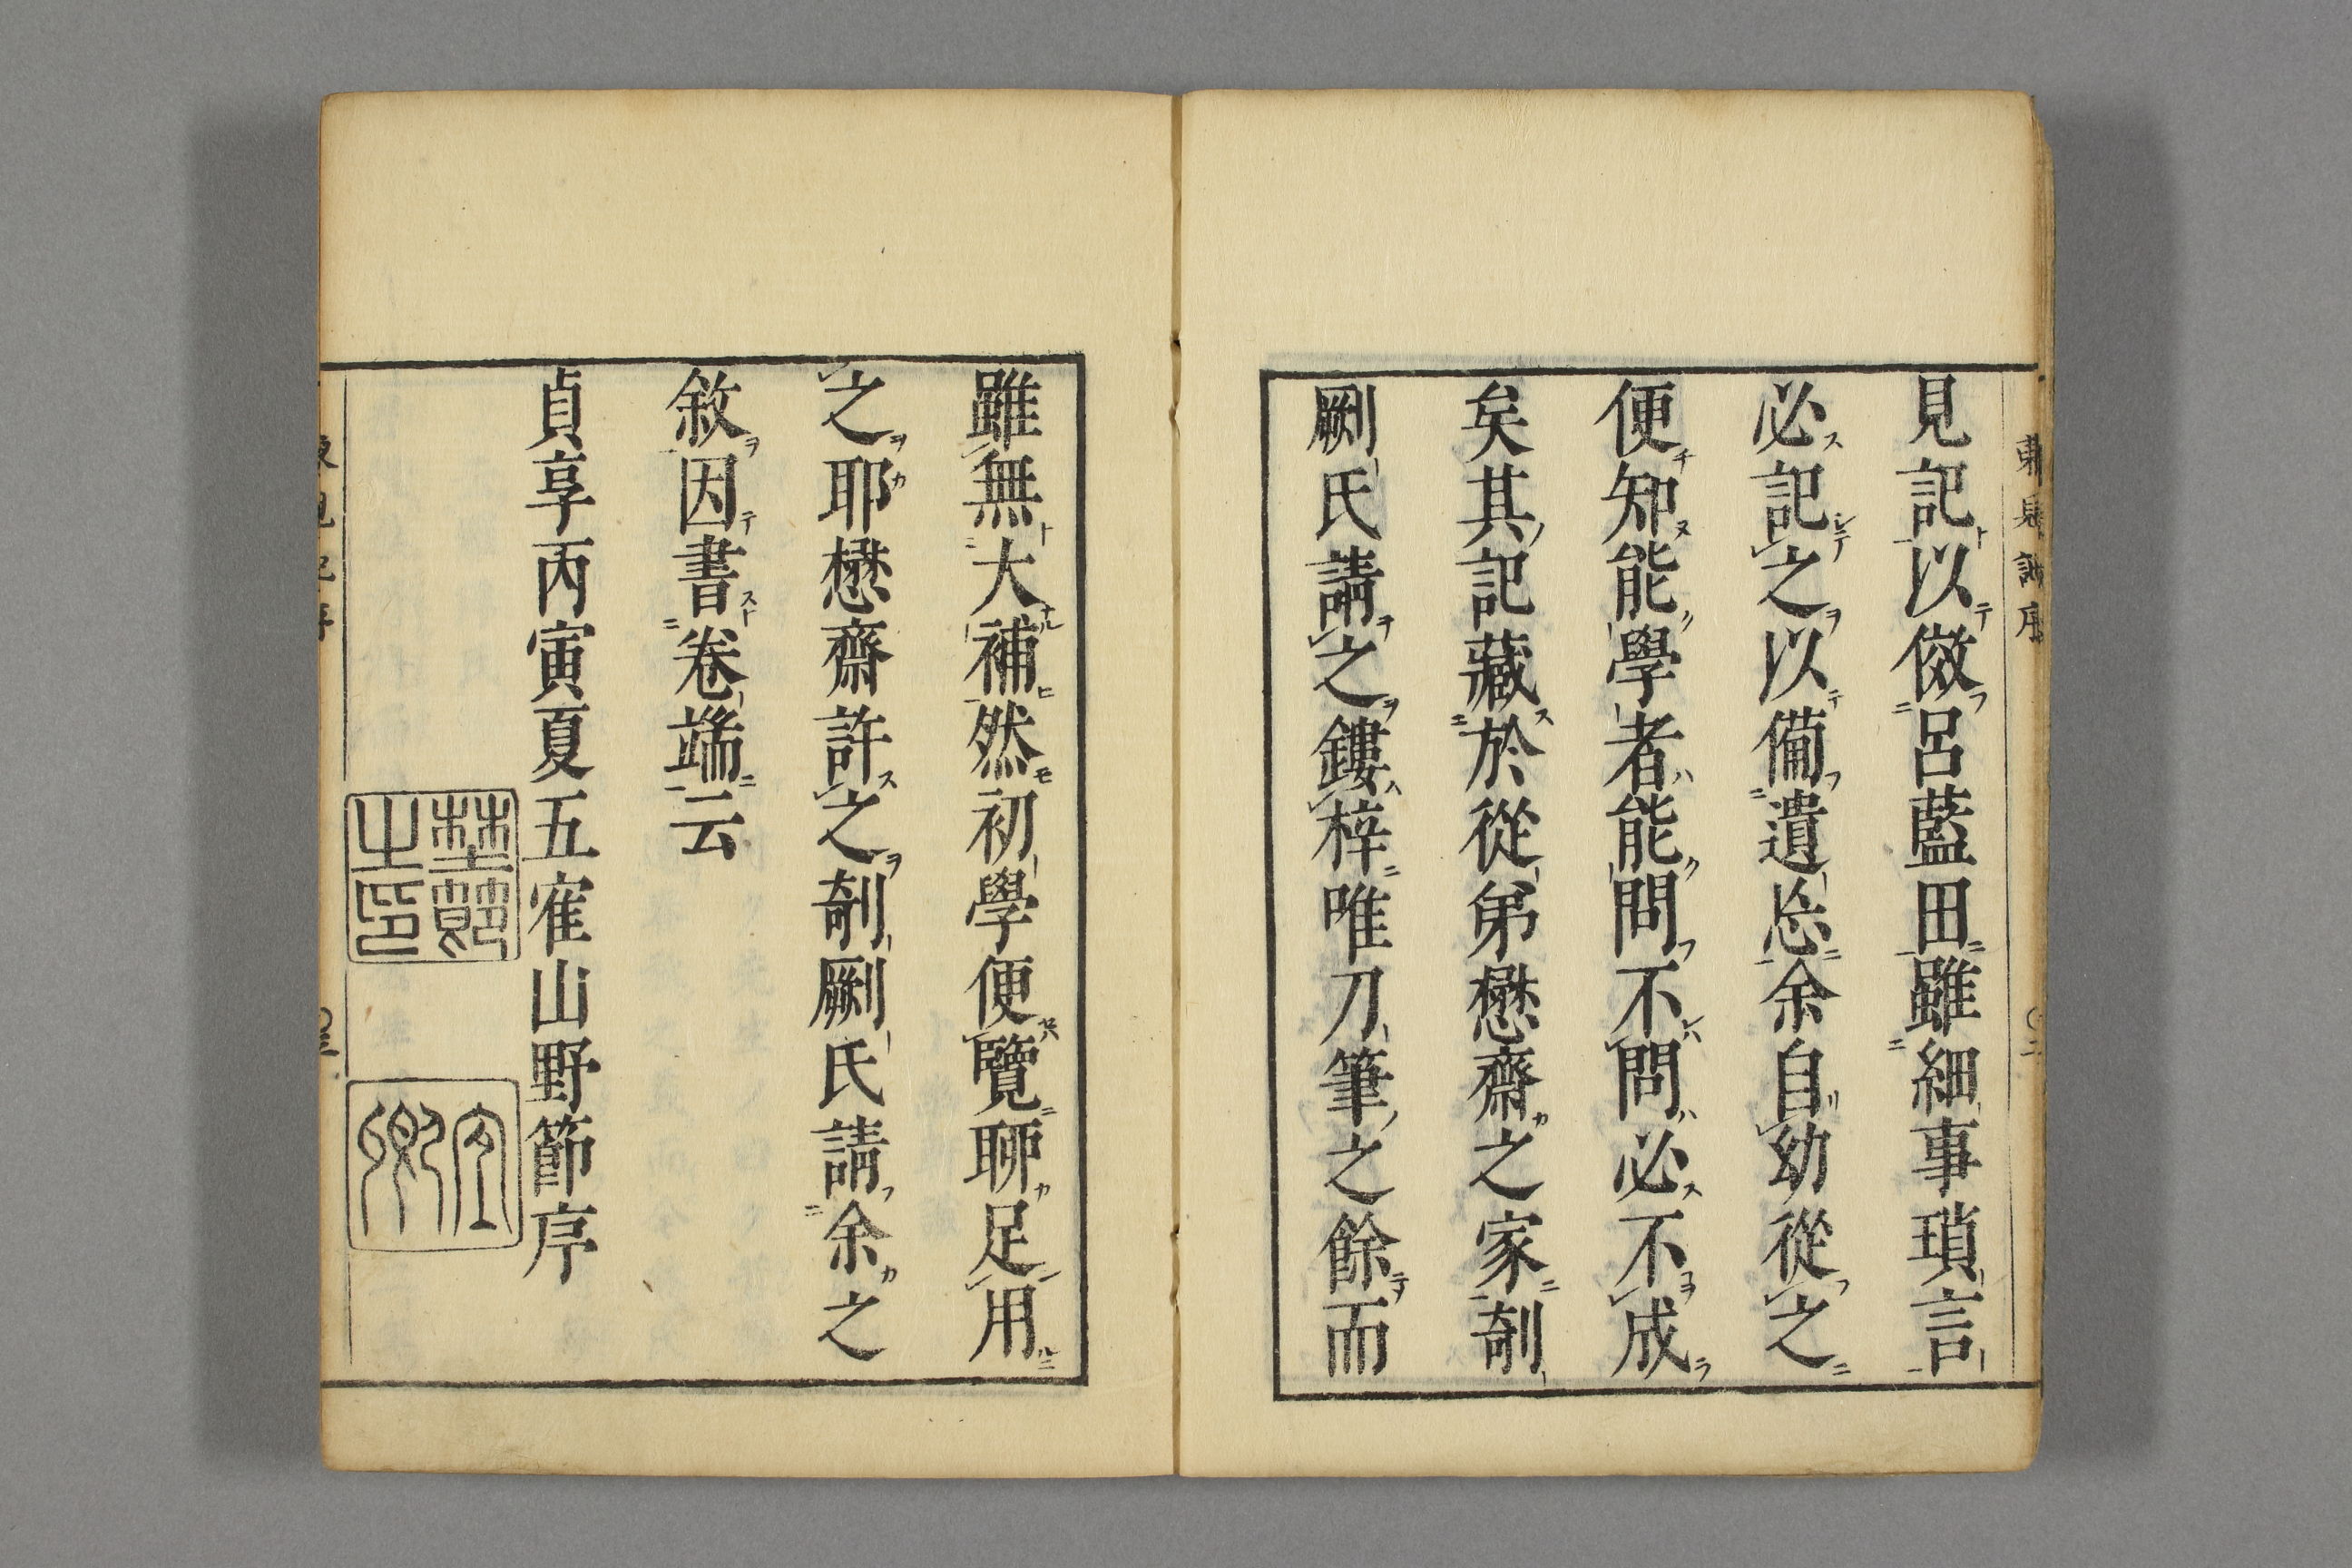 見記以傚呂藍田雖細事瑣言
必記之以備遺忘余自幼從之
便知能學者能問不問必不成
矣其記藏於從弟懋齋之家剞
劂氏請之鏤梓唯刀筆之餘而
雖無大補然初學便覽聊足用
之耶懋齋許之剞劂氏請余之
敘因書卷端云
貞享丙寅夏五寉山野節序